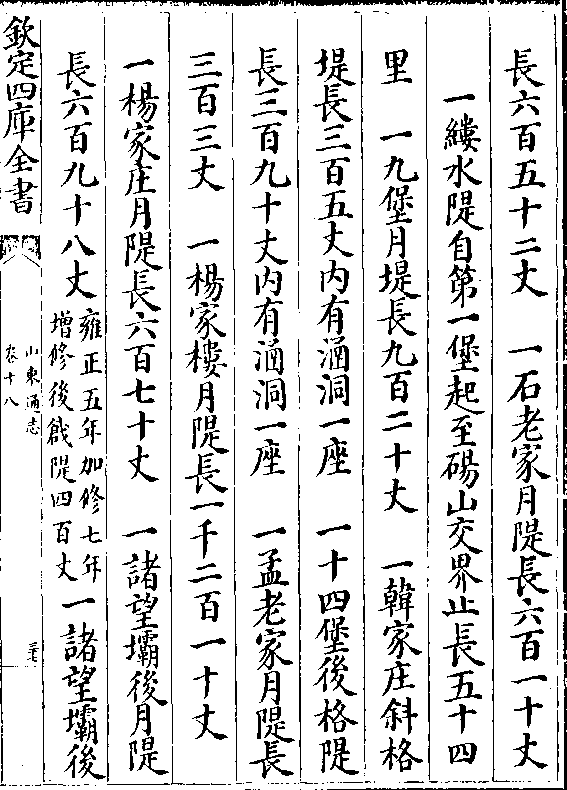 長六百五十二丈　一石老家月隄長六百一十丈
一縷水隄自第一堡起至碭山交界止長五十四
里　一九堡月堤長九百二十丈　一韓家庄斜格
堤長三百五丈内有涵洞一座　一十四堡後格隄
長三百九十丈内有涵洞一座　一孟老家月隄長
三百三丈　一楊家樓月隄長一千二百一十丈
一楊家庄月隄長六百七十丈　一諸望壩後月隄
長六百九十八丈
雍正五年加修七年
增修後戧隄四百丈
一諸望壩後
欽定四庫全書
山東通志
卷十八
三七